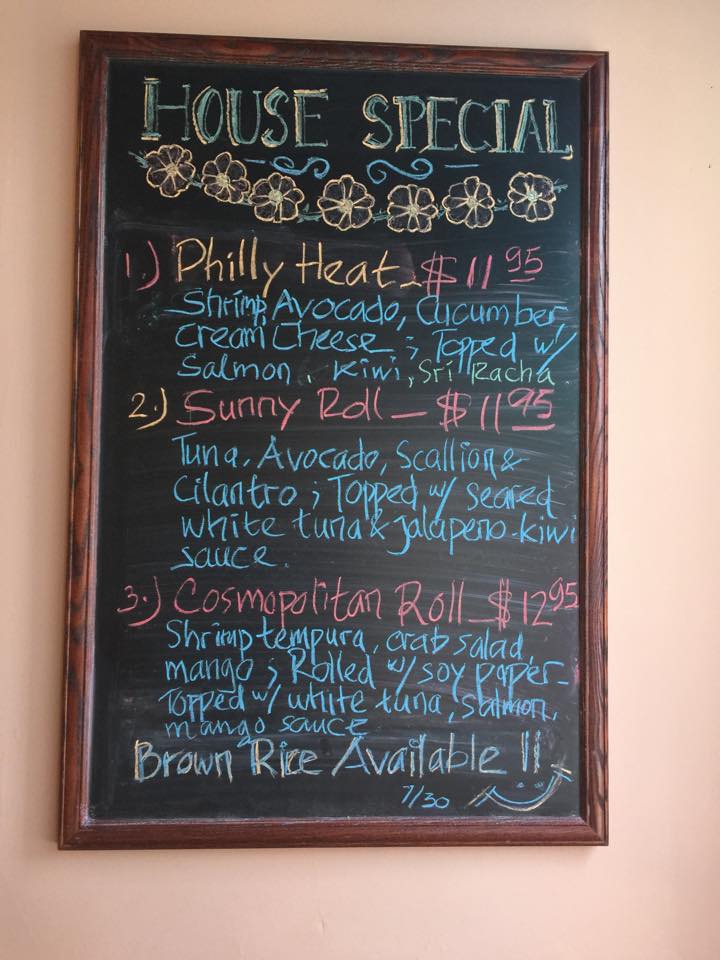 HOUSE SPECIAL
1.) Philly Heat - $11.95
Shrimp, Avocado, Cucumber,
Cream Cheese ; Topped w/
Salmon, Kiwi, Sri Racha
2.) Sunny Roll - $11.95
Tuna, Avocado, Scallion &
Cilantro ; Topped w/ seared
white tuna & jalapeno-kiwi
sauce.
3.) Cosmopolitan Roll - $12.95
Shrimp tempura, crab salad,
mango ; Rolled w/ soy paper-
Topped w/ white tuna, salmon,
mango sauce
Brown Rice Available !!
7/30